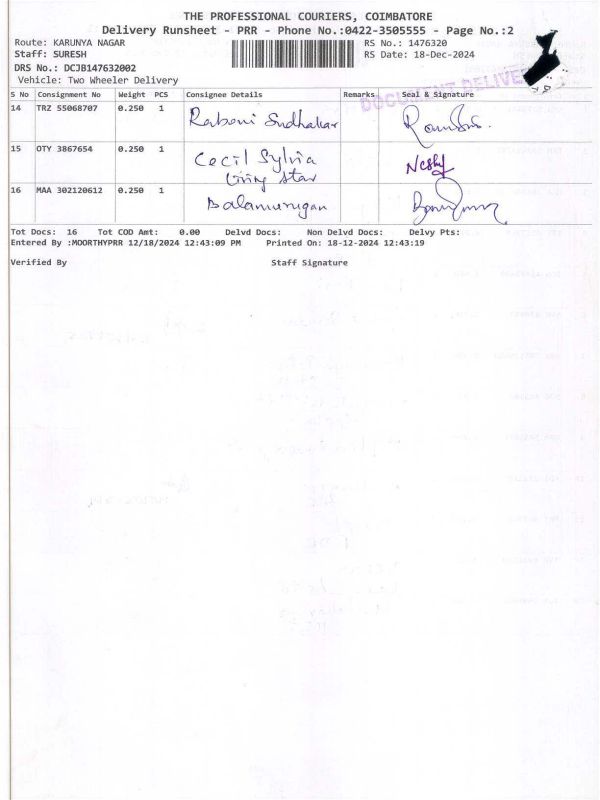 THE PROFESSIONAL COURIERS, COIMBATORE
Delivery Runsheet - PRR - Phone No.:0422-3505555 - Page No.:2
Route: KARUNYA NAGAR
RS No.: 1476320
Staff: SURESH
RS Date: 18-Dec-2024
DRS No.: DCJB147632002
Vehicle: Two Wheeler Delivery
DOCUMENT DELIVE
S No Consignment No Weight PCS Consignee Details Remarks Seal & Signature
14 TRZ 55068707 0.250 1 Raboni Sudhakar
15 OTY 3867654 0.250 1 Cecil Sylvia
Living Star
16 MAA 302120612 0.250 1 Balamurugan
Tot Docs: 16 Tot COD Amt: 0.00 Delvd Docs: Non Delvd Docs: Delvy Pts:
Entered By :MOORTHYPRR 12/18/2024 12:43:09 PM Printed On: 18-12-2024 12:43:19
Verified By Staff Signature